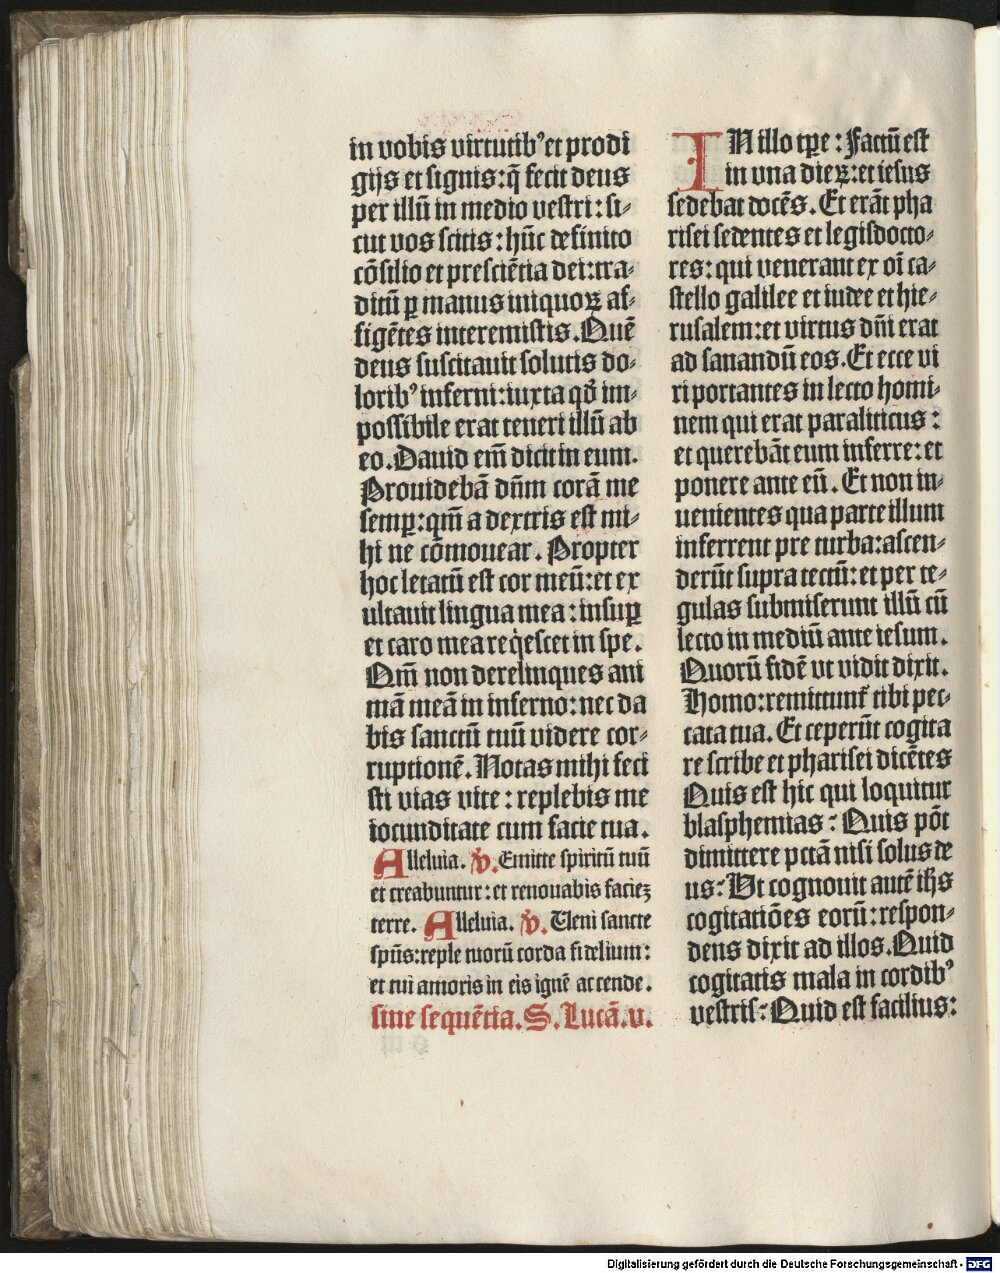 in vobis virtutibꝰ et prodi
gijs et signis: q̃ fecit deus
per illũ in medio vestri: si-
cut vos scitis: hũc definito
cõsilio et presciẽtia dei: tra-
ditũ ꝑ manus iniquoꝝ af-
figẽtes interemistis. Quẽ
deus suscitauit solutis do-
loribꝰ inferni: iuxta qd̛ im-
possibile erat teneri illũ ab
eo. Dauid em̃ dicit in eum.
Prouidebã dñm corã me
semꝑ: qm̃ a dextris est mi-
hi ne cõmouear. Propter
hoc letatũ est cor meũ: et ex
ultauit lingua mea: insuꝑ
et caro mea reqͥescet in spe.
Qm̃ non derelinques ani
mã meã in inferno: nec da
bis sanctũ tuũ videre cor-
ruptionẽ. Notas mihi feci
sti vias vite: replebis me
iocunditate cum facie tua.
Alleluia. ℣. Emitte spiritũ tuũ
et creabuntur: et renouabis facieꝫ
terre. Alleluia. ℣. Ueni sancte
spũs: reple tuorũ corda fidelium:
et tui amoris in eis ignẽ accende.
sine sequẽtia. S. Lucã. v.
IN illo tꝑe: Factũ est
in vna dieꝝ: et iesus
sedebat docẽs. Et erãt pha
risei sedentes et legisdocto-
res: qui venerant ex oĩ ca-
stello galilee et iudee et hie-
rusalem: et virtus dñi erat
ad sanandũ eos. Et ecce vi
ri portantes in lecto homi-
nem qui erat paraliticus:
et querebãt eum inferre: et
ponere ante eũ. Et non in-
uenientes qua parte illum
inferrent pre turba: ascen-
derũt supra tectũ: et per te-
gulas submiserunt illũ cũ
lecto in mediũ ante iesum.
Quorũ fidẽ vt vidit dixit.
Homo: remittunt᷑ tibi pec-
cata tua. Et ceperũt cogita
re scribe et pharisei dicẽtes
Quis est hic qui loquitur
blasphemias: Quis põt
dimittere pctã nisi solus de
us: Ut cognouit autẽ ih̃s
cogitatiões eorũ: respon-
dens dixit ad illos. Quid
cogitatis mala in cordibꝰ
vestris: Quid est facilius:
Digitalisierung gefördert durch die Deutsche Forschungsgemeinschaft - DFG